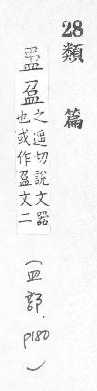 28 類 篇
之遥切說文器
也或作文二
(皿部. p180)